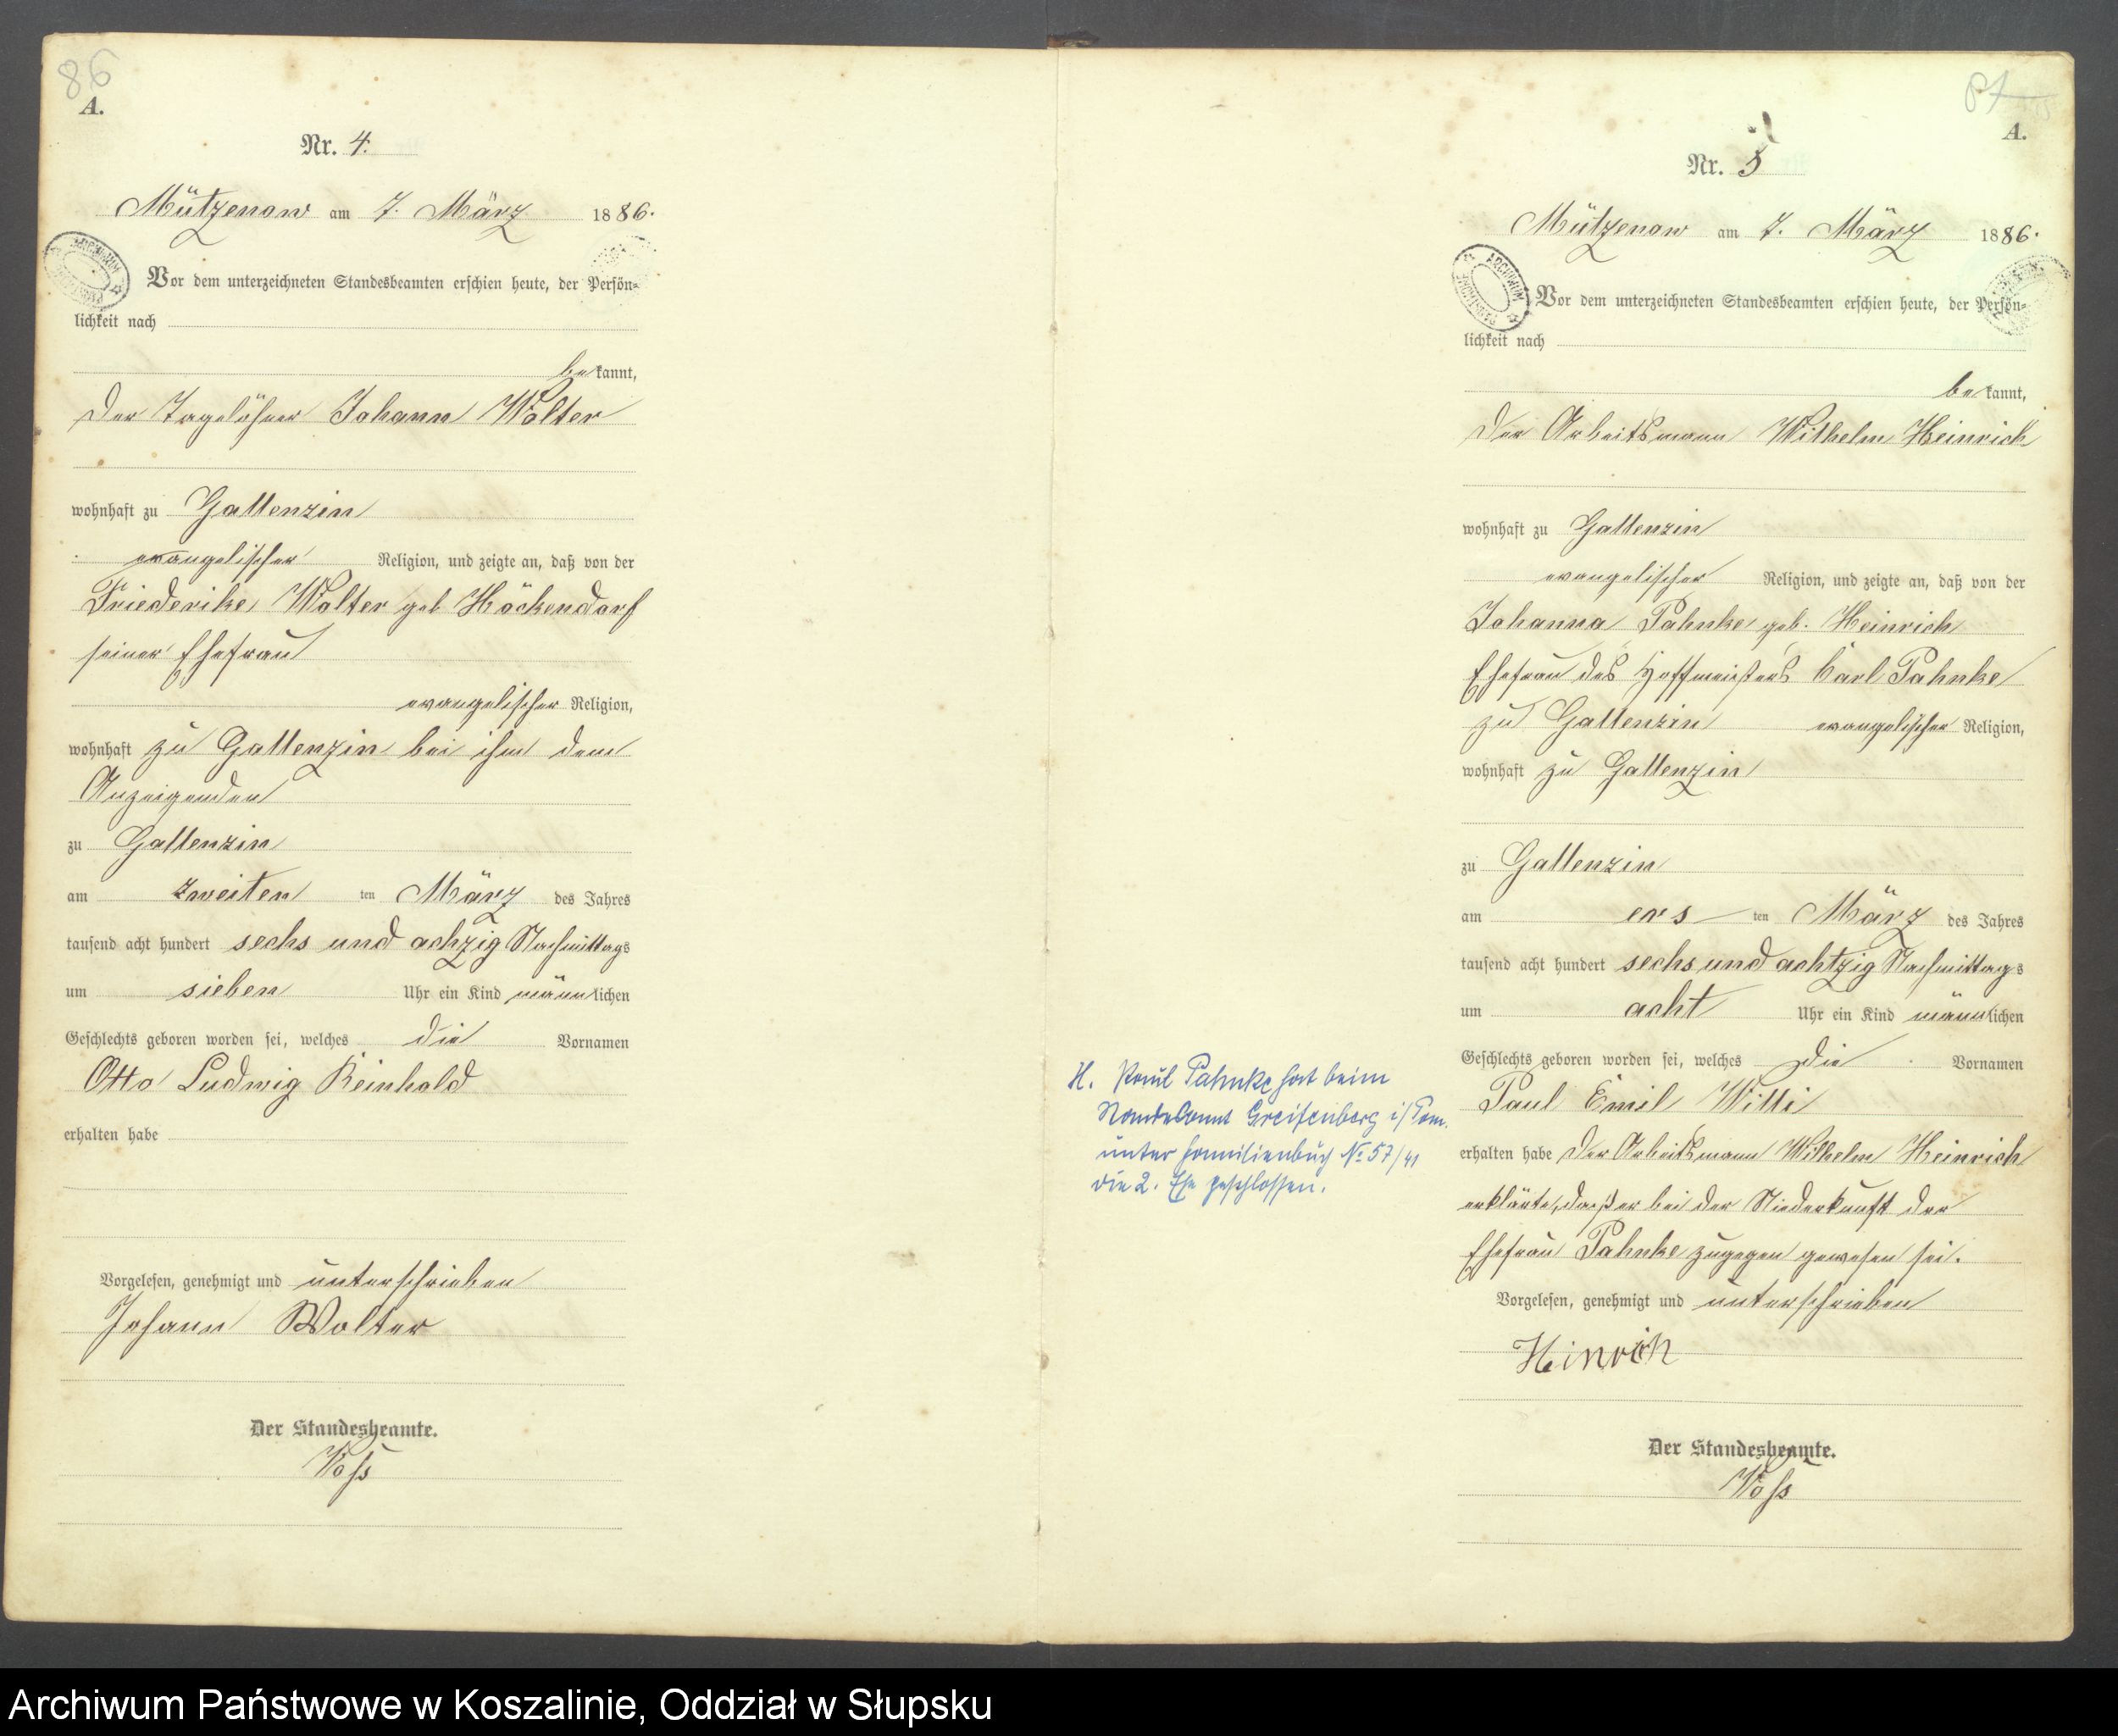 86
A.
Nr. 4.
Mützenow am 7. März 1886.
Vor dem unterzeichneten Standesbeamten erschien heute, der Persön-
lichkeit nach
bekannt,
der Tagelöhner Johann Wolter
wohnhaft zu Gallenzin
evangelischer Religion, und zeigte an, daß von der
Friederike Wolter geb Höckendorf
seiner Ehefrau
evangelischer Religion,
wohnhaft zu Gallenzin bei ihm dem
Anzeigenden
zu Gallenzin
am zweiten ten März des Jahres
tausend acht hundert sechs und achzig Nachmittags
um sieben Uhr ein Kind männlichen
Geschlechts geboren worden sei, welches die Vornamen
Otto Ludwig Reinhold
erhalten habe
Vorgelesen, genehmigt und unterschrieben
Johann Wolter
Der Standesbeamte.
Voss
87
A.
Nr. 5
Mützenow am 7. März 1886.
ARCHIWUM
Vor dem unterzeichneten Standesbeamten erschien heute, der Persön-
lichkeit nach
bekannt,
der Arbeitsmann Wilhelm Heinrich
wohnhaft zu Gallenzin
evangelischer Religion, und zeigte an, daß von der
Johanna Pahnke geb. Heinrich
Ehefrau des Hoffmeisters Carl Pahnke
zu Gallenzin evangelischer Religion,
wohnhaft zu Gallenzin
zu Gallenzin
am ers ten März des Jahres
tausend acht hundert sechs und achtzig Nachmittags
um acht Uhr ein Kind männlichen
Geschlechts geboren worden sei, welches die Vornamen
Paul Emil Willi
erhalten habe Der Arbeitsmann Wilhelm Heinrich
erklärte, daß er bei der Niederkunft der
Ehefrau Pahnke zugegen gewesen sei.
Vorgelesen, genehmigt und unterschrieben
Hinrich
Der Standesbeamte.
Voss
H. Paul Pahnke hat beim
Standesamt Greifenberg i/Pom.
unter Familienbuch No 57/41
die 2. Ehe geschlossen.
Archiwum Państwowe w Koszalinie, Oddział w Słupsku